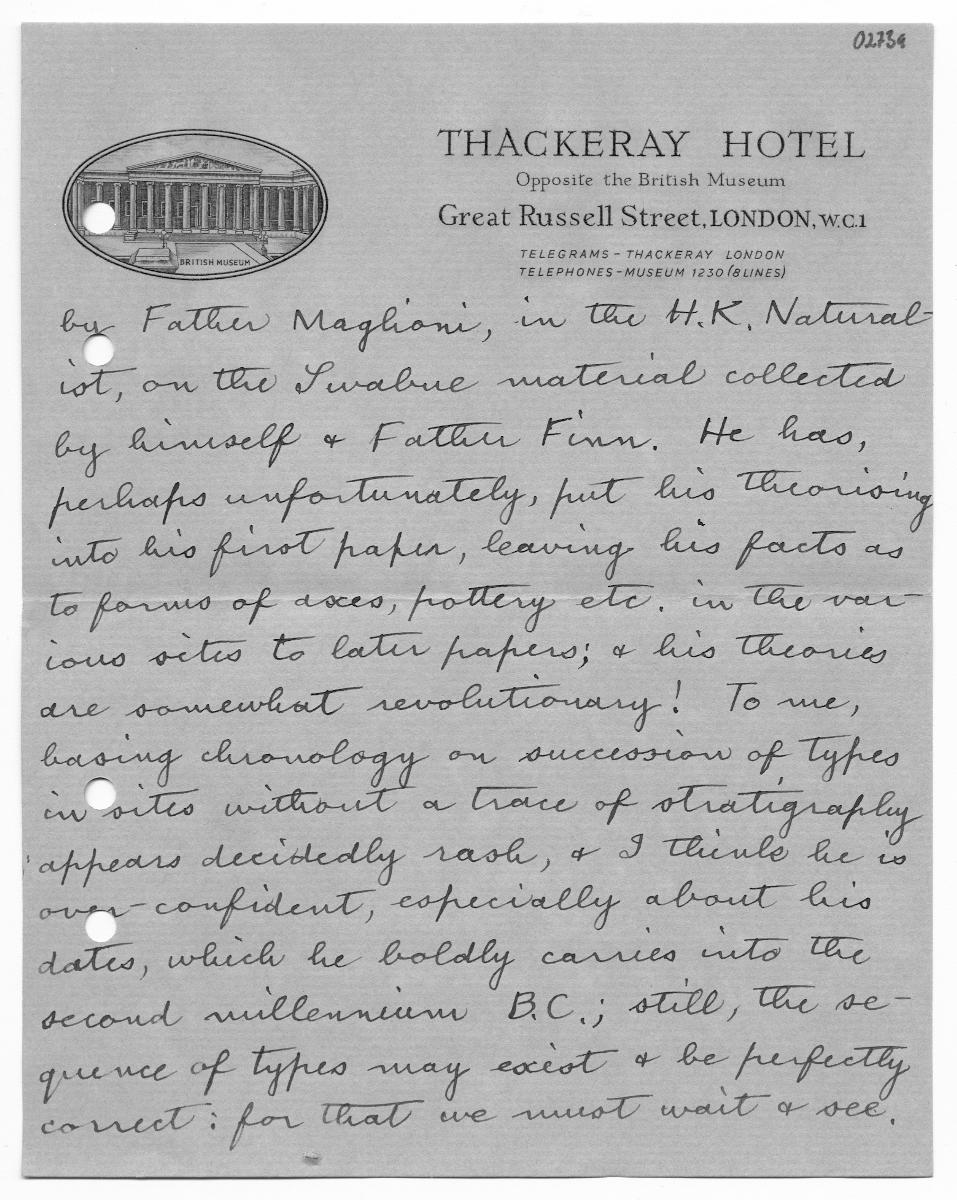 0273a
THACKERAY HOTEL
Opposite the British Museum
Great Russell Street, LONDON, W.C.1
TELEGRAMS – THACKERAY LONDON
TELEPHONES – MUSEUM 1230 (8 LINES)
BRITISH MUSEUM
by Father Maglioni, in the H.K. Natural-
ist, on the Swabue material collected
by himself & Father Finn. He has,
perhaps unfortunately, put his theorising
into his first paper, leaving his facts as
to forms of axes, pottery etc. in the var-
ious sites to later papers; & his theories
are somewhat revolutionary! To me,
basing chronology on succession of types
in sites without a trace of stratigraphy
appears decidedly rash, & I think he is
over-confident, especially about his
dates, which he boldly carries into the
second millennium B.C.; still, the se-
quence of types may exist & be perfectly
correct: for that we must wait & see.